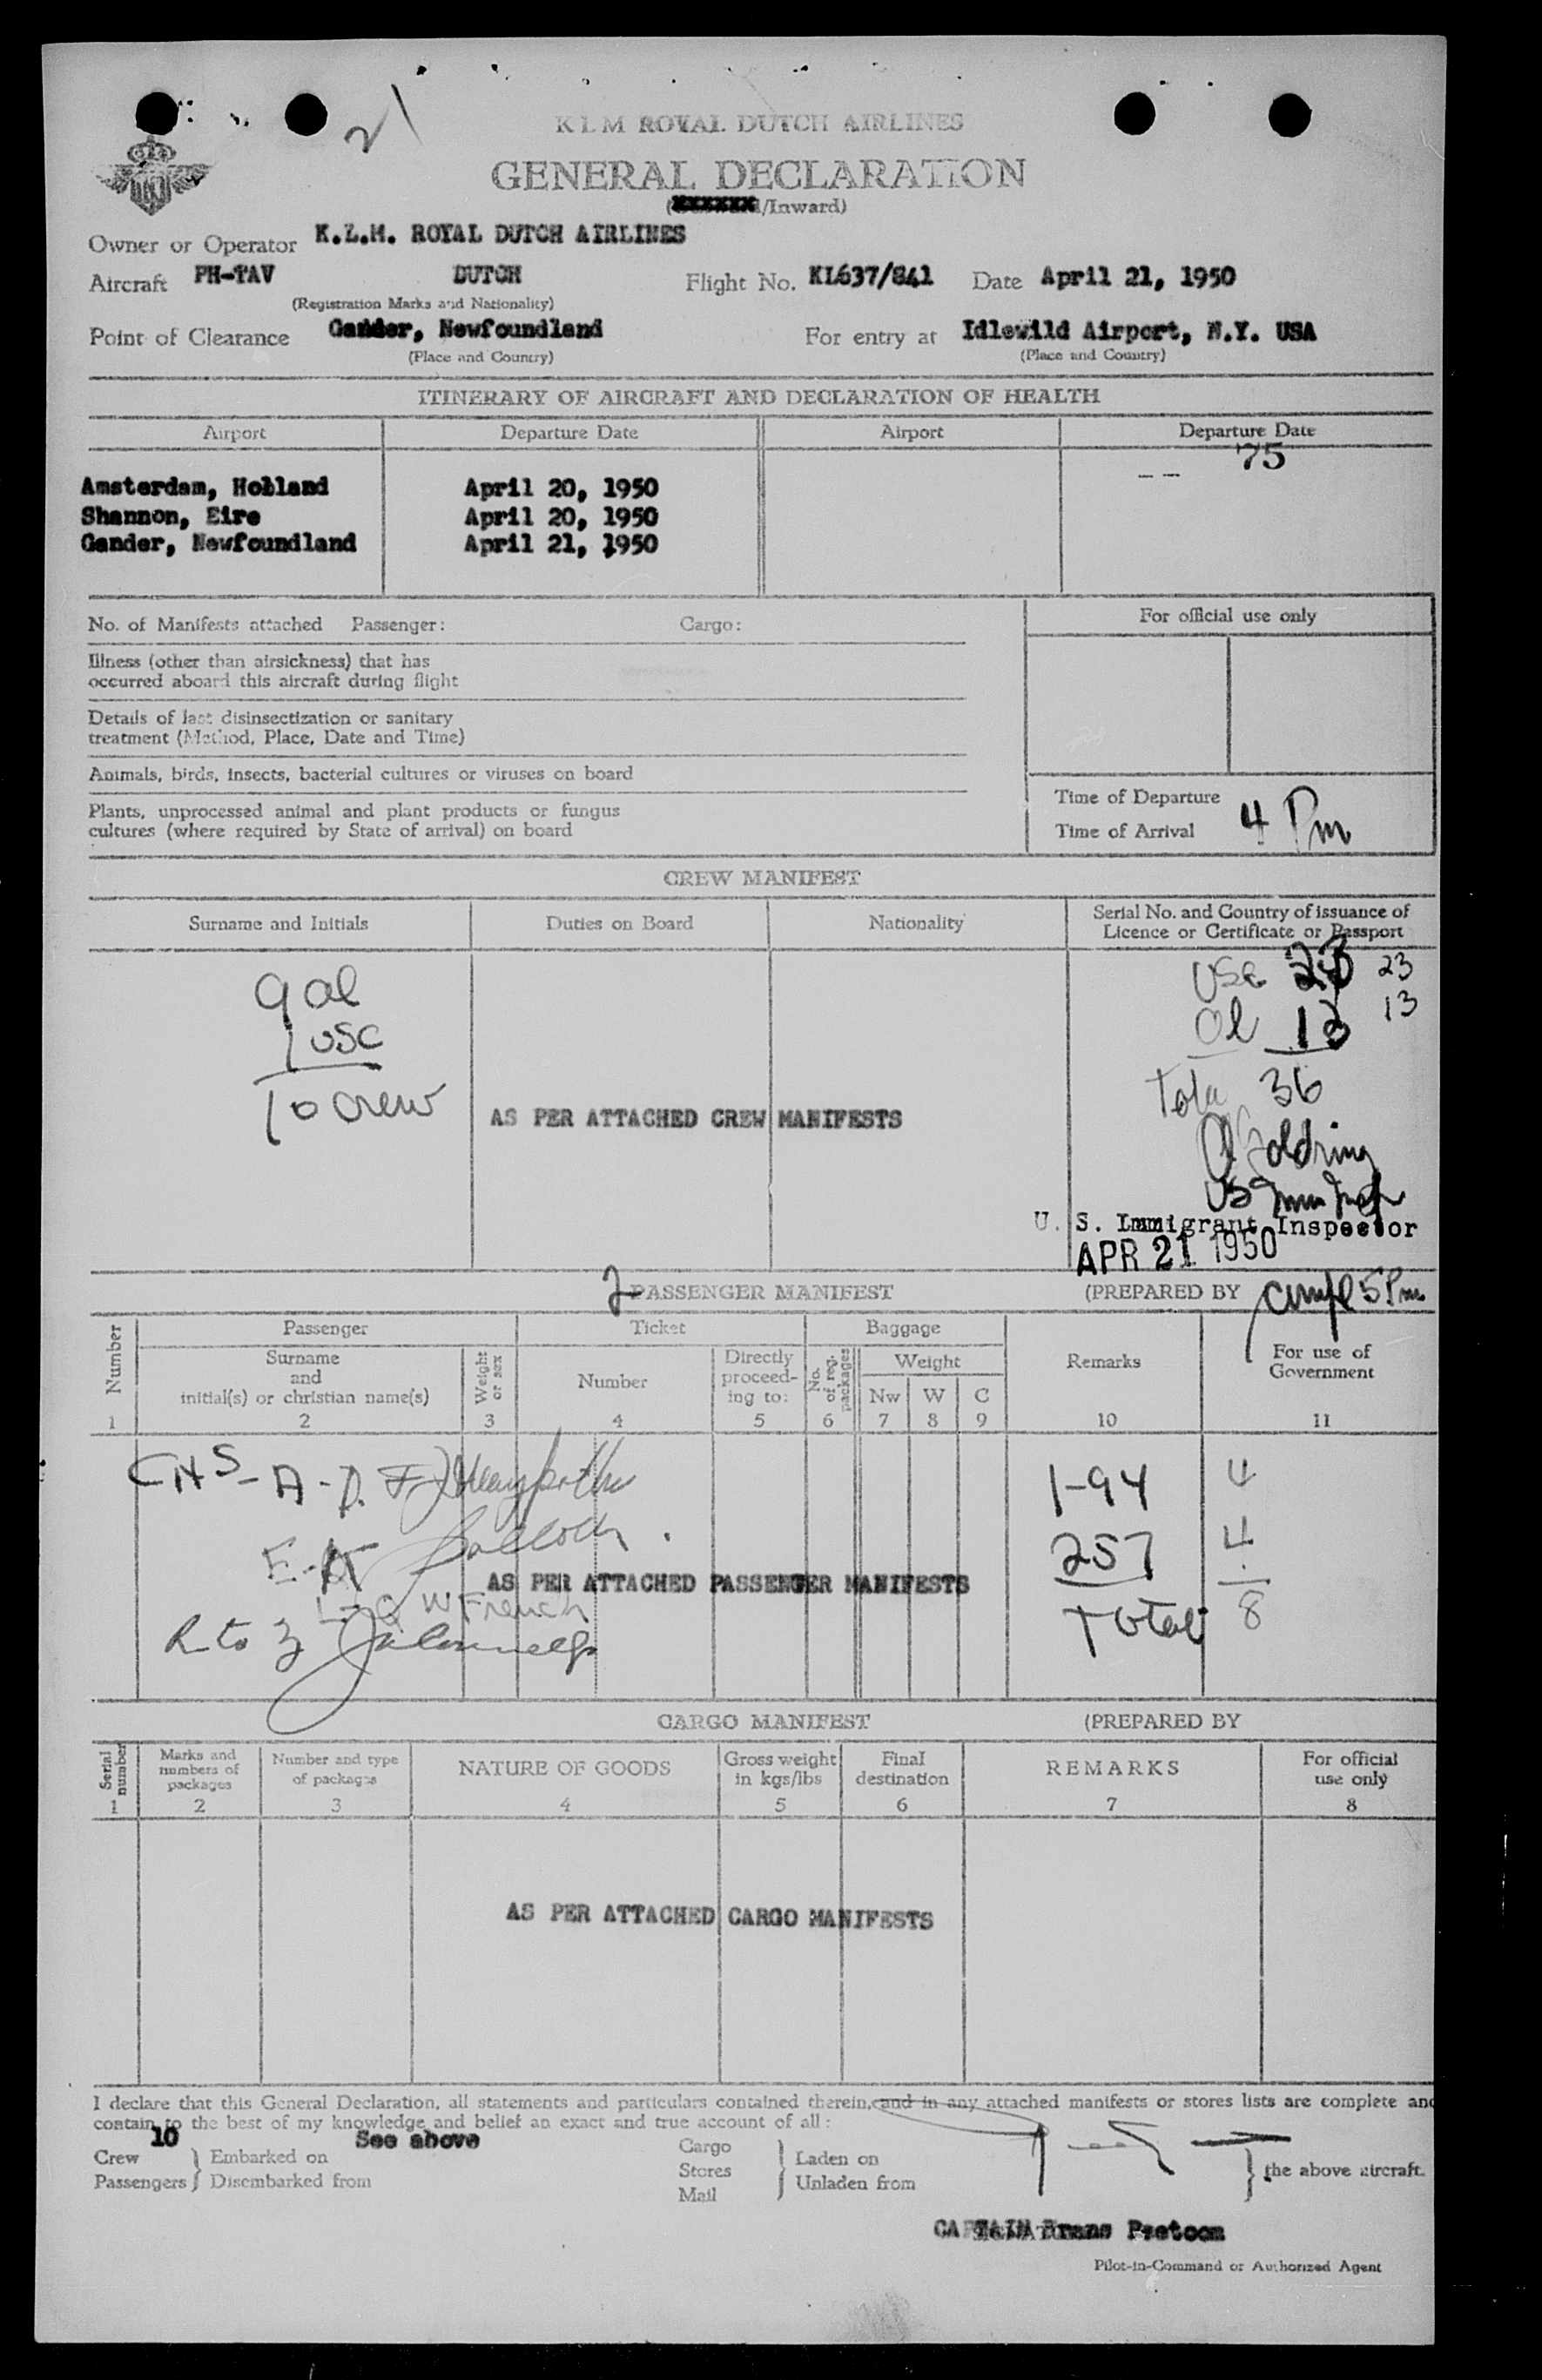 21
K L M ROYAL DUTCH AIRLINES
GENERAL DECLARATION
/Inward)
Owner or Operator K.L.M. ROYAL DUTCH AIRLINES
Aircraft PH-TAV DUTCH Flight No. KL637/841 Date April 21, 1950
(Registration Marks and Nationality)
Point of Clearance Gander, Newfoundland For entry at Idlewild Airport, N.Y. USA
(Place and Country) (Place and Country)
ITINERARY OF AIRCRAFT AND DECLARATION OF HEALTH
Airport Departure Date Airport Departure Date
75
Amsterdam, Holland April 20, 1950
Shannon, Eire April 20, 1950
Gander, Newfoundland April 21, 1950
No. of Manifests attached Passenger: Cargo:
For official use only
Illness (other than airsickness) that has
occurred aboard this aircraft during flight
Details of last disinsectization or sanitary
treatment (Method, Place, Date and Time)
Animals, birds, insects, bacterial cultures or viruses on board
Plants, unprocessed animal and plant products or fungus
cultures (where required by State of arrival) on board
Time of Departure
Time of Arrival 4 Pm
CREW MANIFEST
Surname and Initials Duties on Board Nationality Serial No. and Country of issuance of
Licence or Certificate or Passport
9 al
1 USC
10 Crew
USC 23 23
al 13 13
Total 36
AS PER ATTACHED CREW MANIFESTS
Goldring
US Imm Insp
U. S. Immigrant Inspector
APR 21 1950
2 PASSENGER MANIFEST (PREPARED BY 5 Pm
Number Passenger Ticket Baggage Remarks For use of
Government
Surname
and
initial(s) or christian name(s)
Weight or sex
Number
Directly
proceed-
ing to:
No. of reg. packages
Weight
Nw W C
1 2 3 4 5 6 7 8 9 10 11
1-94 4
257 4
Total 8
AS PER ATTACHED PASSENGER MANIFESTS
W French
R to Z
CARGO MANIFEST (PREPARED BY
Serial number
Marks and
numbers of
packages
Number and type
of packages
NATURE OF GOODS
Gross weight
in kgs/lbs
Final
destination
REMARKS
For official
use only
1 2 3 4 5 6 7 8
AS PER ATTACHED CARGO MANIFESTS
I declare that this General Declaration, all statements and particulars contained therein, and in any attached manifests or stores lists are complete and
contain to the best of my knowledge and belief an exact and true account of all:
10 See above
Crew Embarked on Cargo Laden on
Passengers Disembarked from Stores Unladen from the above aircraft.
Mail
CAPTAIN
Pilot-in-Command or Authorized Agent